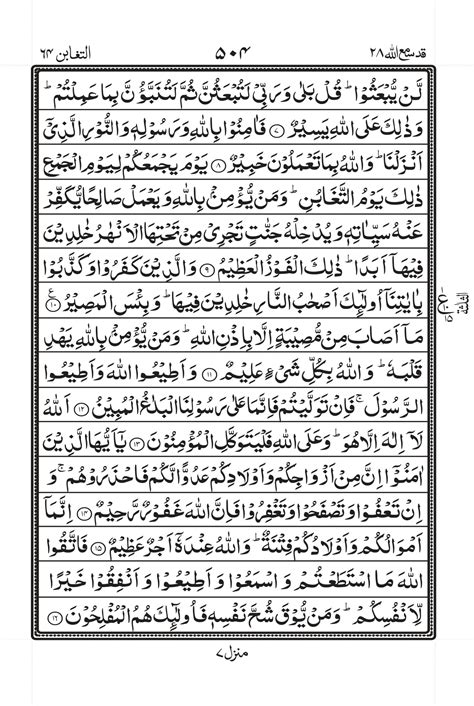 قد سمع الله ٢٨
۵۰۴
التغابن ٦٤
لَّنْ يُّبْعَثُوْا ؕ قُلْ بَلٰى وَرَبِّىْ لَتُبْعَثُنَّ ثُمَّ لَتُنَبَّؤُنَّ بِمَا عَمِلْتُمْ ؕ
وَذٰلِكَ عَلَى اللّٰهِ يَسِيْرٌ ۝۷ فَاٰمِنُوْا بِاللّٰهِ وَرَسُوْلِهٖ وَالنُّوْرِ الَّذِىْۤ
اَنْزَلْنَا ؕ وَاللّٰهُ بِمَا تَعْمَلُوْنَ خَبِيْرٌ ۝۸ يَوْمَ يَجْمَعُكُمْ لِيَوْمِ الْجَمْعِ
ذٰلِكَ يَوْمُ التَّغَابُنِ ؕ وَمَنْ يُّؤْمِنْۢ بِاللّٰهِ وَيَعْمَلْ صَالِحًا يُّكَفِّرْ
عَنْهُ سَيِّاٰتِهٖ وَيُدْخِلْهُ جَنّٰتٍ تَجْرِىْ مِنْ تَحْتِهَا الْاَنْهٰرُ خٰلِدِيْنَ
فِيْهَاۤ اَبَدًا ؕ ذٰلِكَ الْفَوْزُ الْعَظِيْمُ ۝۹ وَالَّذِيْنَ كَفَرُوْا وَكَذَّبُوْا
بِاٰيٰتِنَاۤ اُولٰٓئِكَ اَصْحٰبُ النَّارِ خٰلِدِيْنَ فِيْهَا ؕ وَبِئْسَ الْمَصِيْرُ ۝۱۰
مَاۤ اَصَابَ مِنْ مُّصِيْبَةٍ اِلَّا بِاِذْنِ اللّٰهِ ؕ وَمَنْ يُّؤْمِنْۢ بِاللّٰهِ يَهْدِ
قَلْبَهٗ ؕ وَاللّٰهُ بِكُلِّ شَىْءٍ عَلِيْمٌ ۝۱۱ وَاَطِيْعُوا اللّٰهَ وَاَطِيْعُوا
الرَّسُوْلَ ۚ فَاِنْ تَوَلَّيْتُمْ فَاِنَّمَا عَلٰى رَسُوْلِنَا الْبَلٰغُ الْمُبِيْنُ ۝۱۲ اَللّٰهُ
لَاۤ اِلٰهَ اِلَّا هُوَ ؕ وَعَلَى اللّٰهِ فَلْيَتَوَكَّلِ الْمُؤْمِنُوْنَ ۝۱۳ يٰۤاَيُّهَا الَّذِيْنَ
اٰمَنُوْۤا اِنَّ مِنْ اَزْوَاجِكُمْ وَاَوْلَادِكُمْ عَدُوًّا لَّكُمْ فَاحْذَرُوْهُمْ ۚ وَ
اِنْ تَعْفُوْا وَتَصْفَحُوْا وَتَغْفِرُوْا فَاِنَّ اللّٰهَ غَفُوْرٌ رَّحِيْمٌ ۝۱۴ اِنَّمَاۤ
اَمْوَالُكُمْ وَاَوْلَادُكُمْ فِتْنَةٌ ؕ وَاللّٰهُ عِنْدَهٗۤ اَجْرٌ عَظِيْمٌ ۝۱۵ فَاتَّقُوا
اللّٰهَ مَا اسْتَطَعْتُمْ وَاسْمَعُوْا وَاَطِيْعُوْا وَاَنْفِقُوْا خَيْرًا
لِّاَنْفُسِكُمْ ؕ وَمَنْ يُّوْقَ شُحَّ نَفْسِهٖ فَاُولٰٓئِكَ هُمُ الْمُفْلِحُوْنَ ۝۱۶
منزل ۷